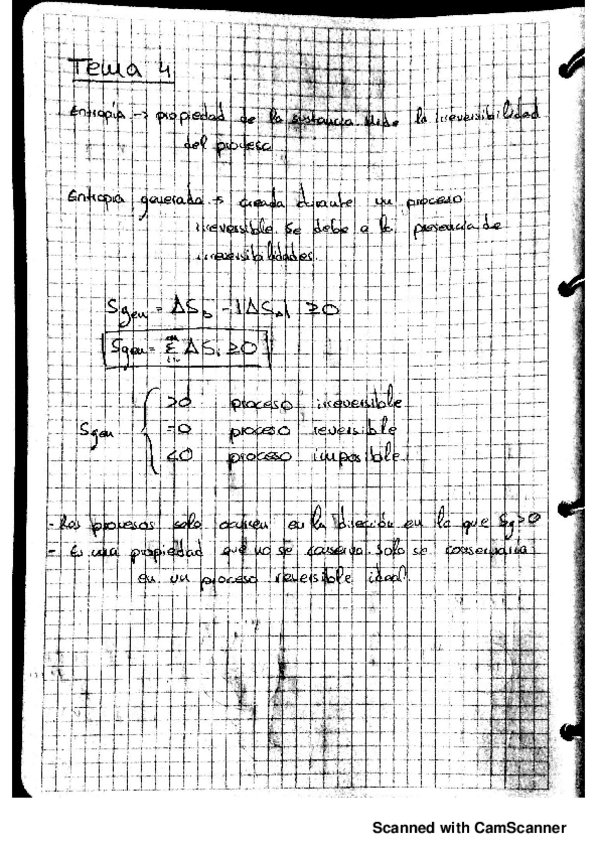 Tema 4
Entropía → propiedad de la sustancia mide la irreversibilidad
del proceso
Entropia generada → creada durante un proceso
irreversible. Se debe a la presencia de
irreversibilidades.
Sgen = ΔS_b - |ΔS_a| ≥0
Sgen = Σ ΔSi ≥0
Sgen { >0 proceso irreversible
=0 proceso reversible
<0 proceso imposible.
- Los procesos solo ocurren en la dirección en la que Sg>0
- Es una propiedad que no se conserva. Solo se conservaria
en un proceso reversible ideal.
Scanned with CamScanner